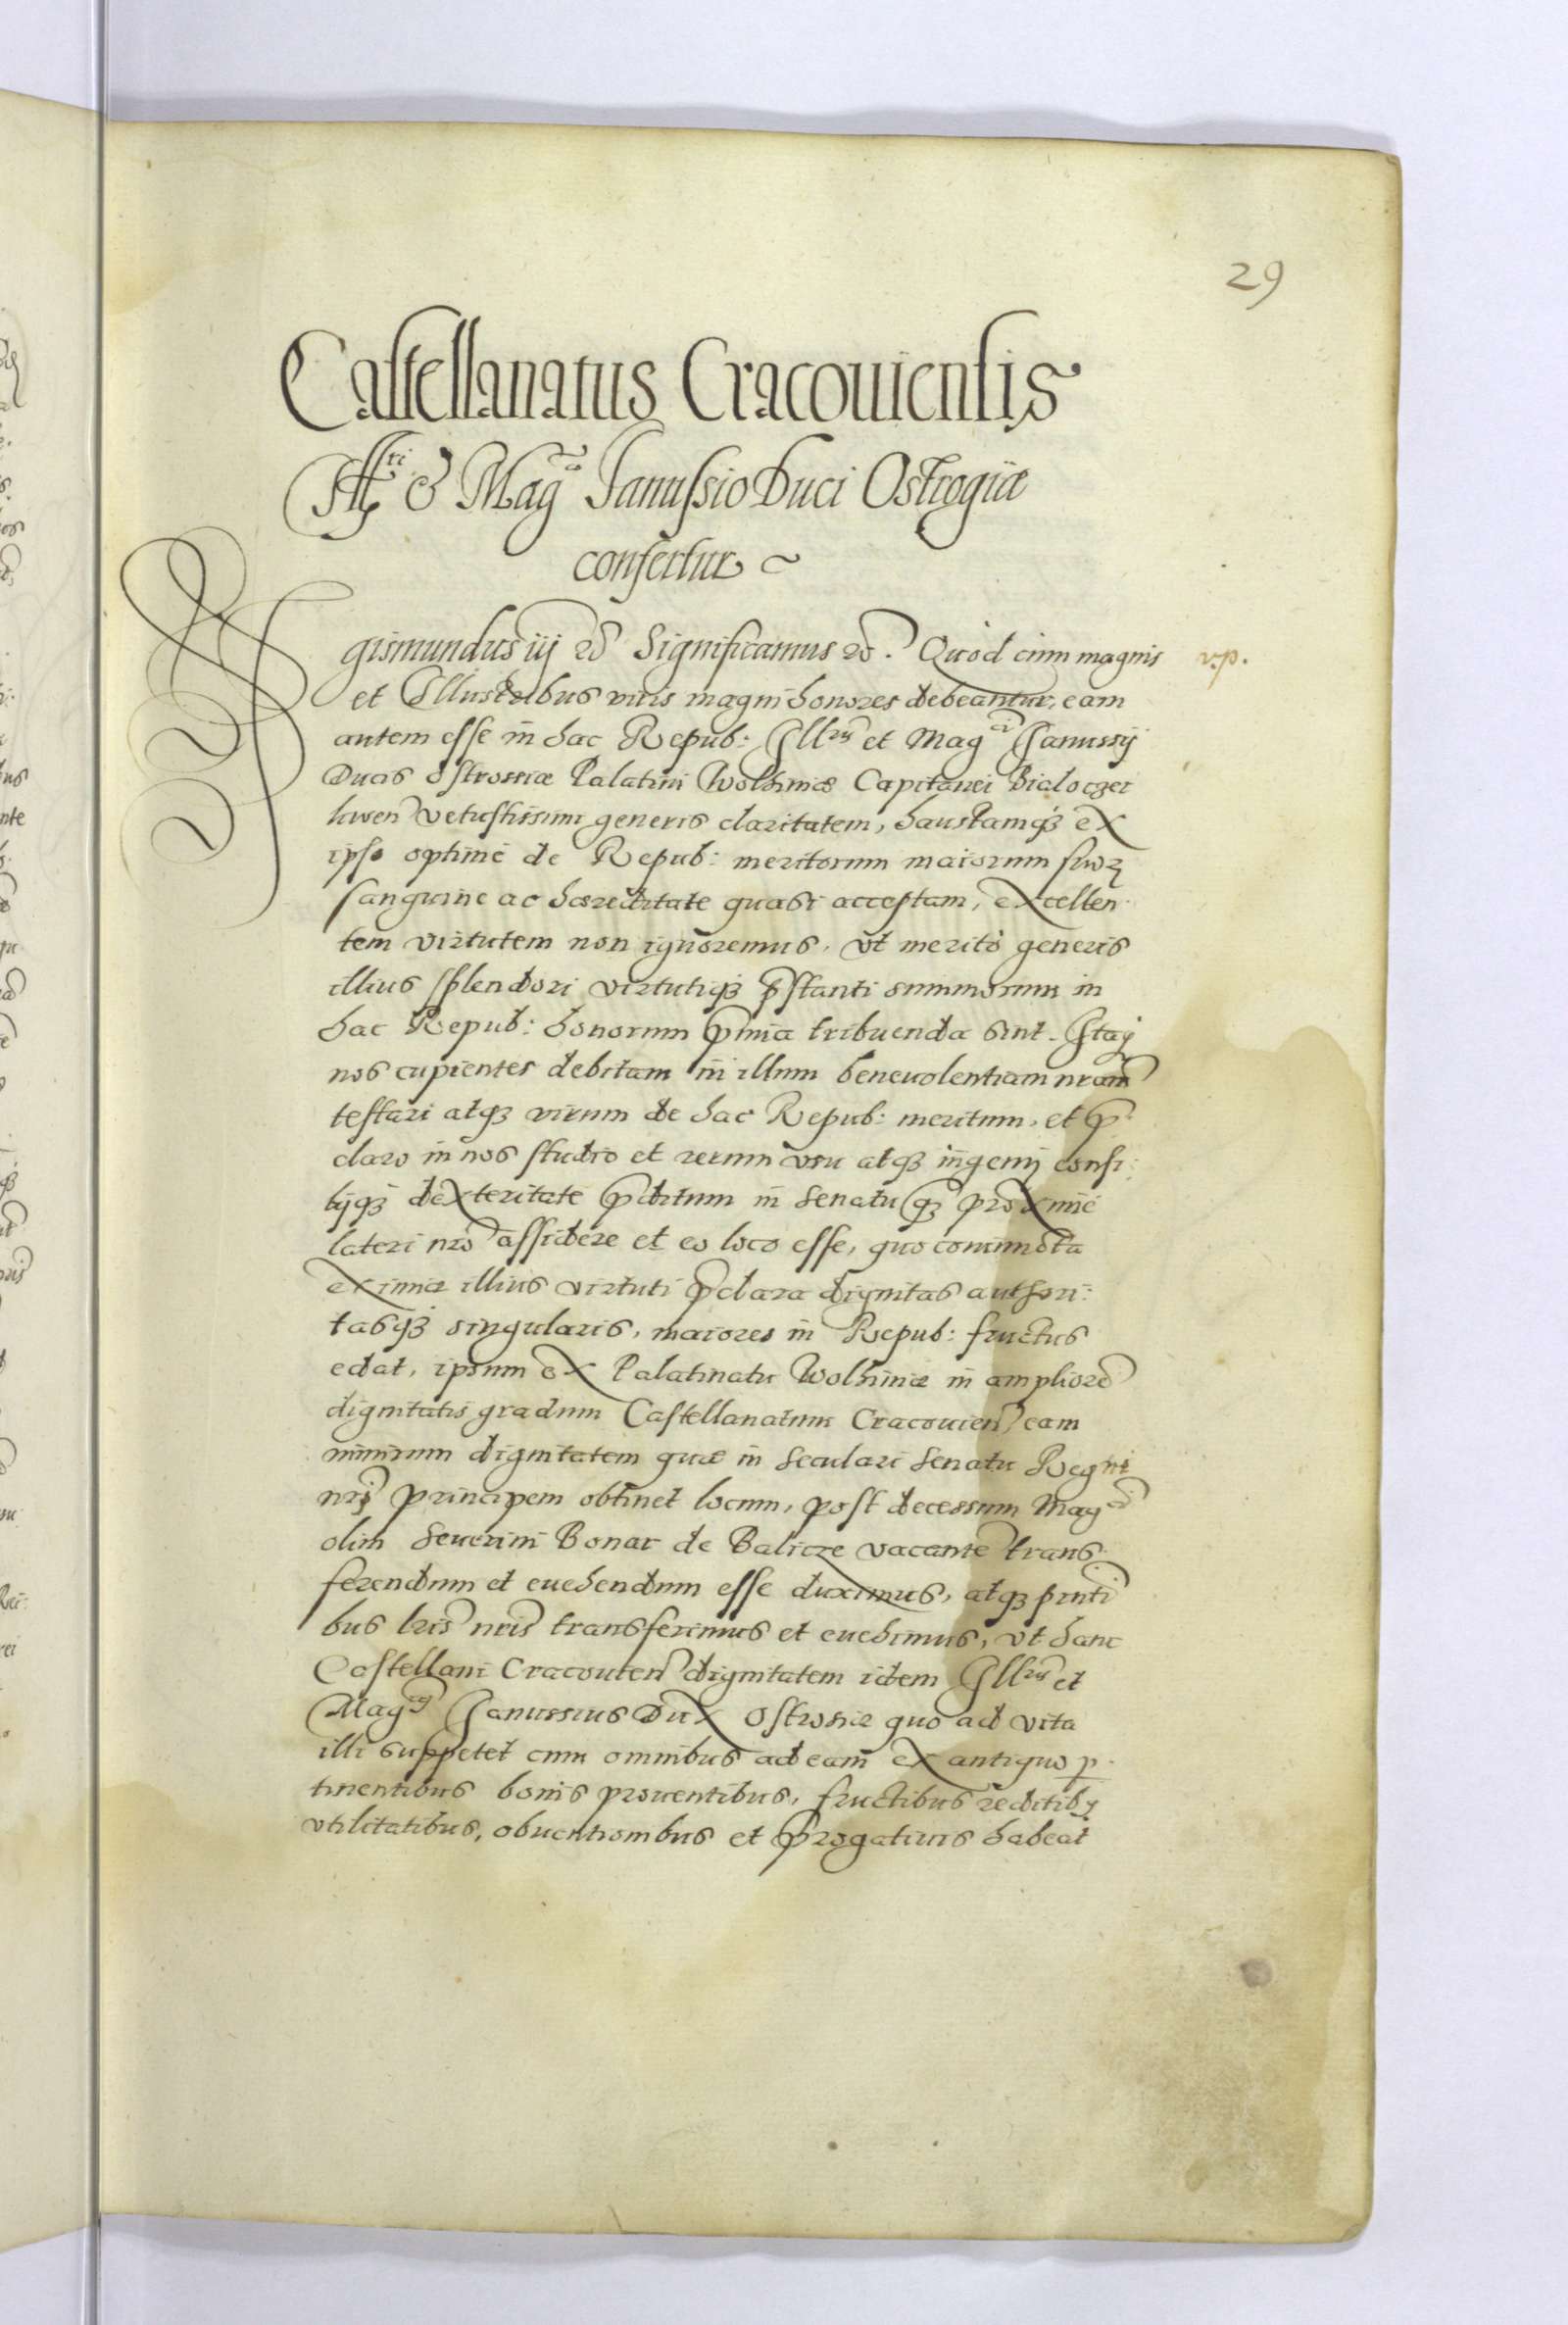 29
Castellanatus Cracouiensis
Ill^ri & Mag^co Ianussio Duci Ostrogiæ
confertur ~
Sigismundus iij &c Significamus &c. Quod cum magnis v.p.
et Illustribus viris magni honores debeantur, eam
autem esse in hac Repub: Ill^ris et Mag^ci Janussij
Ducis Ostrosiæ Palatini Wolhiniæ Capitanei Bialoczer
kwen vetustissimi generis claritatem, haustamq3 ex
ipso optimè de Repub: meritorum maiorum suor
sanguine ac hæreditate quasi acceptam, excellen
tem virtutem non ignoremus, vt meritò generis
illius splendori virtutiq3 p̄stanti summorum in
hac Repub: honorum p̄mia tribuenda sint. Itaq
nos cupientes debitam in illum beneuolentiam nram
testari atq3 virum de hac Repub: meritum, et p̄
claro in nos studio et rerum vsu atq3 ingenij consi:
lijq3 dexteritate p̄ditum in Senatu q3 proximè
lateri nro assidere et eo loco esse, quo commota
eximiæ illius virtuti p̄clara dignitas authori:
tasq3 singularis, maiores in Repub: fructus
edat, ipsum ex Palatinatu Wolhiniæ in ampliorē
dignitatis gradum Castellanatum Cracouien, eam
nimirum dignitatem quæ in seculari Senatu Regni
nri principem obtinet locum, post decessum Mag^ci
olim Seuerini Bonar de Balicze vacantē trans
ferendum et euehendum esse duximus, atq3 pnti
bus lris nris transferimus et euehimus, vt hanc
Castellani Cracouien dignitatem idem Ill^ris et
Mag^cus Janussius Dux Ostrosiæ quo ad vita
illi suppetet cum omnibus ad eam ex antiquo p
tinentibus bonis prouentibus, fructibus reditib9
vtilitatibus, obuentionibus et p̄rogatiuis habeat